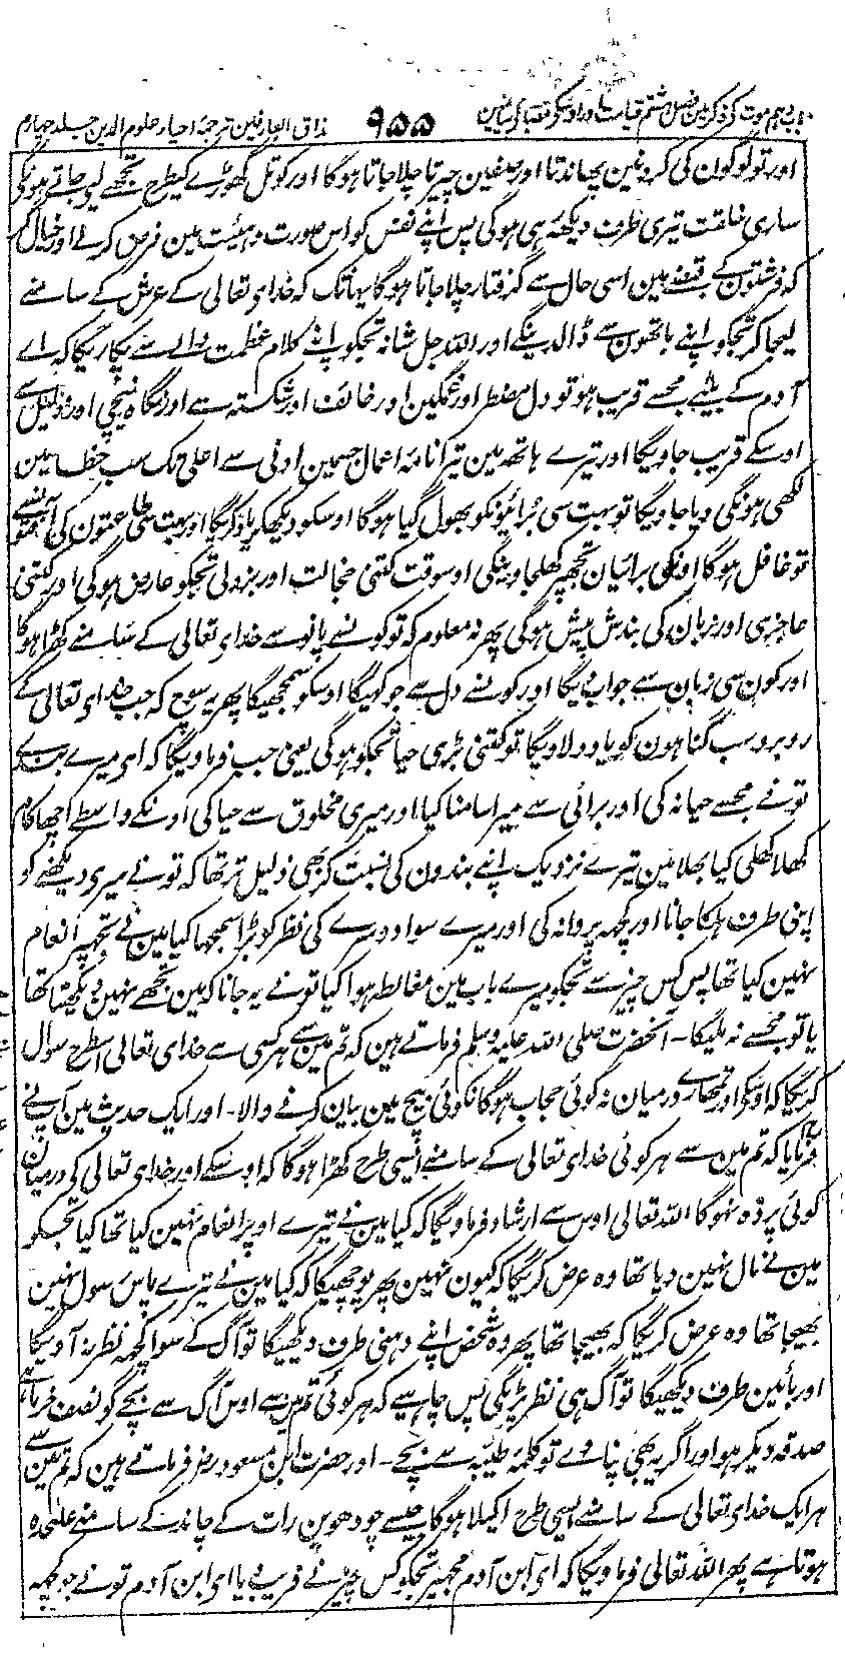 باب دہم موت کے ذکر مین فصل ہشتم قیامت اور اوسکے مصائب کے بیان مین
۹۵۵
مذاق العارفین ترجمۂ احیاء علوم الدین جلد چہارم
اور تو لوگون کی گردنین پھاندتا اور صفین چیرتا چلا جاتا ہوگا اور کوتل گھوڑے کیطرح تجھے لیے جاتے ہونگے
ساری خلقت تیری طرف دیکھتی ہی ہوگی پس اپنے نفس کو اس صورت و ہیئت مین فرض کرلے اور خیال کر
کہ فرشتون کے قبضے مین اسی حال سے گرفتار چلا جاتا ہوگا یہانتک کہ خدای تعالی کے عرش کے سامنے
لیجا کر تجکو اپنے ہاتھون سے ڈالدینگے اور اللہ جل شانہ تجکو اپنے کلام عظمت والے سے پکاریگا کہ اے
آدم کے بیٹے مجھسے قریب ہو تو دل مضطر اور غمگین اور خائف اور شکستہ سے اور نگاہ نیچی اور ذلیل سے
اوسکے قریب جاویگا اور تیرے ہاتھ مین تیرا نامۂ اعمال جسمین ادنی سے اعلی تک سب خطائین
لکھی ہونگی دیا جاویگا تو بہت سی برائیونکو بھول گیا ہوگا اوسکو دیکھکر یاد کریگا اور بہت سی طاعتون کی آفتونسے
تو غافل ہوگا اونکی برائیان تجھپر کھلجاوینگی اوسوقت کتنی خجالت اور بزدلی تجکو عارض ہوگی اور کتنی
عاجزی اور زبان کی بندش پیش ہوگی پھر نہ معلوم کہ تو کونسے پانو سے خدای تعالی کے سامنے کھڑا ہوگا
اور کون سی زبان سے جواب دیگا اور کونسے دل سے جو کہیگا اوسکو سمجھیگا پھر یہ سوچ کہ جب خدای تعالی کے
روبرو سب گناہون کو یاد دلاویگا تو کتنی بڑی حیا تجکو ہوگی یعنی جب فرماویگا کہ ای میرے بندے
تو نے مجھسے حیا نہ کی اور برائی سے میرا سامنا کیا اور میری مخلوق سے حیا کی اونکے واسطے اچھا کام
کھلا کھلی کیا بھلا مین تیرے نزدیک اپنے بندون کی نسبت کر بھی ذلیل تر تھا کہ تو نے میری دیکھنے کو
اپنی طرف ہلکا جانا اور کچھ پروا نہ کی اور میرے سوا دوسرے کی نظر کو بڑا سمجھا کیا مین نے تجھپر انعام
نہین کیا تھا پس کس چیز سے تجکو میرے باب مین مغالطہ ہوا کیا تو نے یہ جانا کہ مین تجھے نہین دیکھتا تھا
یا تو مجھسے نہ ملیگا ۔ آنحضرت صلی اللہ علیہ وسلم فرماتے ہین کہ تم مین سے ہر کسی سے خدای تعالی اسطرح سوال
کریگا کہ اوسکے اور تمھارے درمیان نہ کوئی حجاب ہوگا نکوئی بیچ مین بیان کرنے والا ۔ اور ایک حدیث مین آپ نے
فرمایا کہ تم مین سے ہر کوئی خدای تعالی کے سامنے ایسی طرح کھڑا ہوگا کہ اوسکے اور خدای تعالی کے درمیان
کوئی پردہ نہوگا اللہ تعالی اوس سے ارشاد فرماویگا کہ کیا مین نے تیرے اوپر انعام نہین کیا تھا کیا تجکو
مین نے مال نہین دیا تھا وہ عرض کریگا کہ کیون نہین پھر پوچھیگا کہ کیا مین نے تیرے پاس رسول نہین
بھیجا تھا وہ عرض کریگا کہ بھیجا تھا پھر وہ شخص اپنے دہنی طرف دیکھیگا تو آگ کے سوا کچھ نظر نہ آویگا
اور بائین طرف دیکھیگا تو آگ ہی نظر پڑیگی پس چاہیے کہ ہر کوئی تم مین سے اوس آگ سے بچے گو نصف خرما ہی
صدقہ دیکر ہو اور اگر یہ بھی نپاوے تو کلمۂ طیبہ سے بچے ۔ اور حضرت ابن مسعود رضہ فرماتے ہین کہ تم مین سے
ہر ایک خدای تعالی کے سامنے ایسی طرح اکیلا ہوگا جیسے چودھوین رات کے چاند کے سامنے علٰحدہ
ہوتا ہے پھر اللہ تعالی فرماویگا کہ ای ابن آدم مجھپر تجکو کس چیز نے فریب دیا ای ابن آدم تو نے جو کچھ